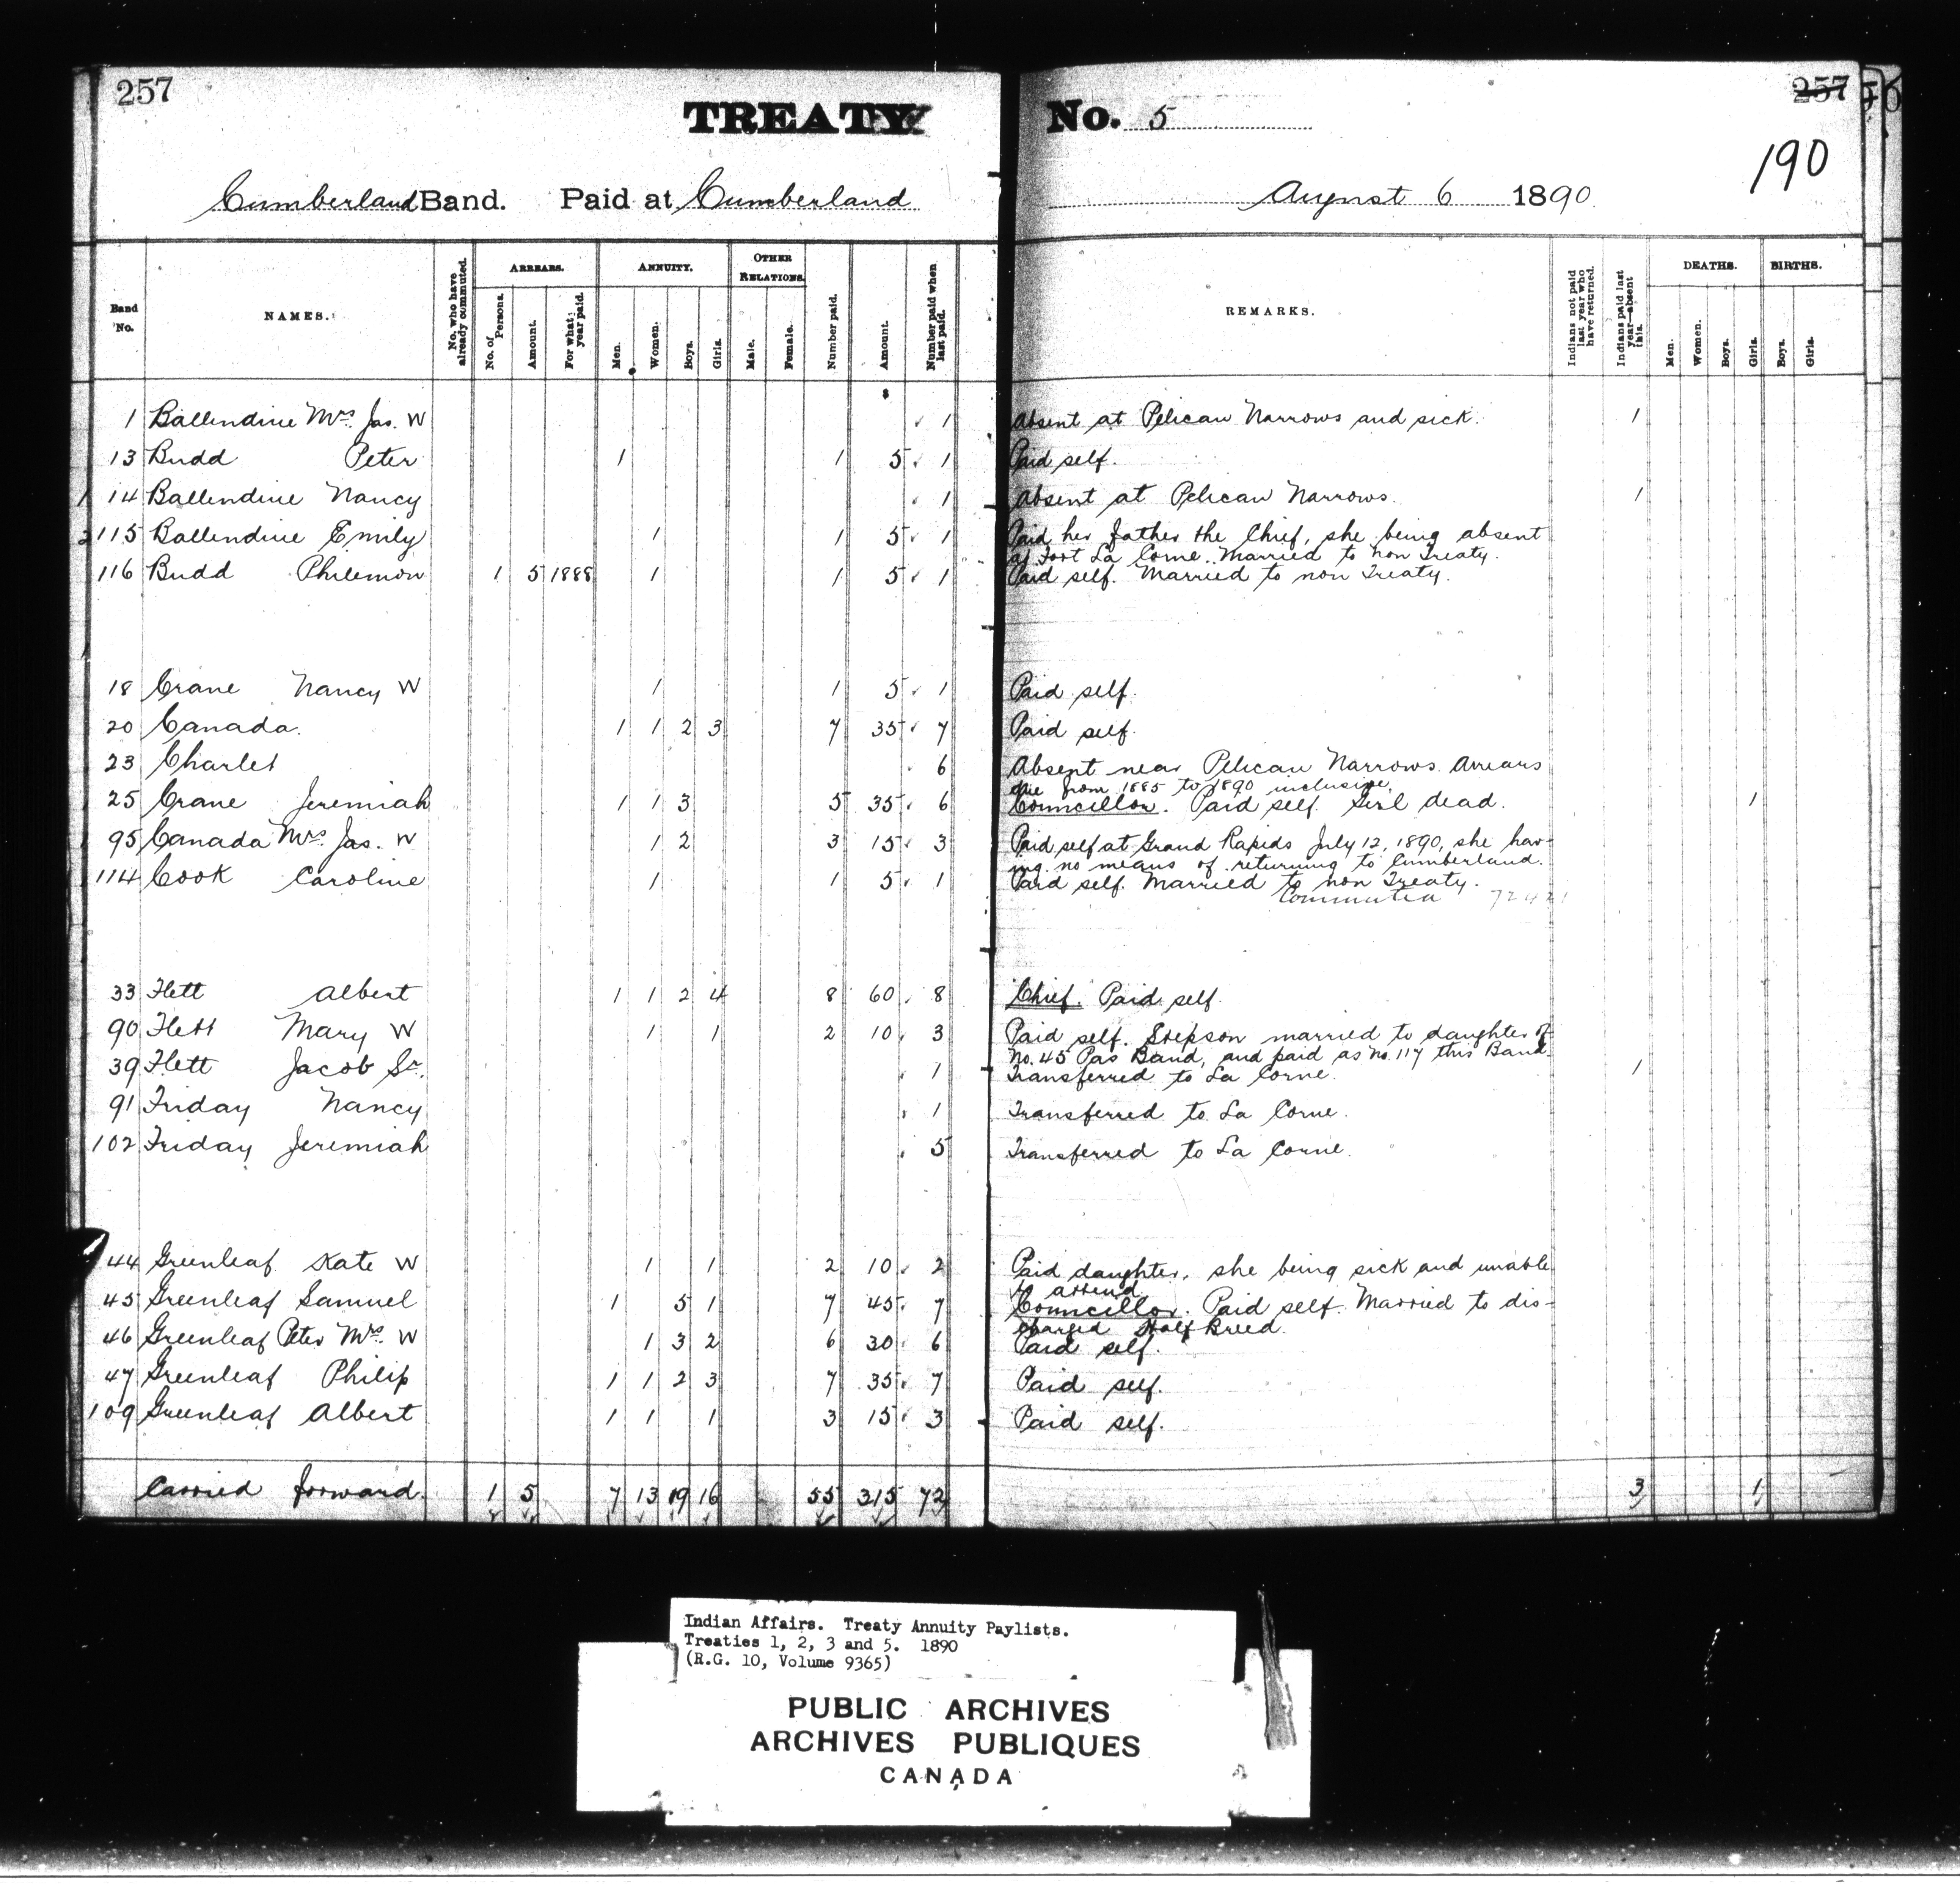 257
TREATY No. 5
257
190
Cumberland Band. Paid at Cumberland August 6 1890
Band No.
NAMES.
No. who have already commuted.
ARREARS.
No. of Persons.
Amount.
For what year paid.
ANNUITY.
Men.
Women.
Boys.
Girls.
OTHER RELATIONS.
Male.
Female.
Number paid.
Amount.
Number paid when last paid.
REMARKS.
Indians not paid last year who have returned.
Indians paid last year—absent this.
DEATHS.
Men.
Women.
Boys.
Girls.
BIRTHS.
Boys.
Girls.
$
1 Ballendine Mrs. Jas. W 1 Absent at Pelican Narrows and sick. 1
13 Budd Peter 1 1 5 1 Paid self.
14 Ballendine Nancy 1 Absent at Pelican Narrows. 1
115 Ballendine Emily 1 1 5 1 Paid her father the Chief, she being absent
at Fort La Corne. Married to non Treaty.
116 Budd Philemon 1 5 1888 1 1 5 1 Paid self. Married to non Treaty.
18 Crane Nancy W 1 1 5 1 Paid self.
20 Canada. 1 1 2 3 7 35 7 Paid self.
23 Charlet 6 Absent near Pelican Narrows. Arrears
due from 1885 to 1890 inclusive.
25 Crane Jeremiah 1 1 3 5 35 6 Councillor. Paid self. Girl dead. 1
95 Canada Mrs. Jas. W 1 2 3 15 3 Paid self at Grand Rapids July 12, 1890, she hav-
ing no means of returning to Cumberland.
114 Cook Caroline 1 1 5 1 Paid self. Married to non Treaty.
Commuted
33 Flett Albert 1 1 2 4 8 60 8 Chief. Paid self.
90 Flett Mary W 1 1 2 10 3 Paid self. Stepson married to daughter of
No. 45 Pas Band, and paid as No. 117 this Band.
39 Flett Jacob Sr. 1 Transferred to La Corne. 1
91 Friday Nancy 1 Transferred to La Corne.
102 Friday Jeremiah 5 Transferred to La Corne.
44 Greenleaf Kate W 1 1 2 10 2 Paid daughter, she being sick and unable
to attend
45 Greenleaf Samuel 1 5 1 7 45 7 Councillor. Paid self. Married to dis-
charged Half Breed.
46 Greenleaf Peter Mrs. W 1 3 2 6 30 6 Paid self.
47 Greenleaf Philip 1 1 2 3 7 35 7 Paid self.
109 Greenleaf Albert 1 1 1 3 15 3 Paid self.
Carried forward. 1 5 7 13 19 16 55 315 73 3 1
Indian Affairs. Treaty Annuity Paylists.
Treaties 1, 2, 3 and 5. 1890
(R.G. 10, Volume 9365)
PUBLIC ARCHIVES
ARCHIVES PUBLIQUES
CANADA